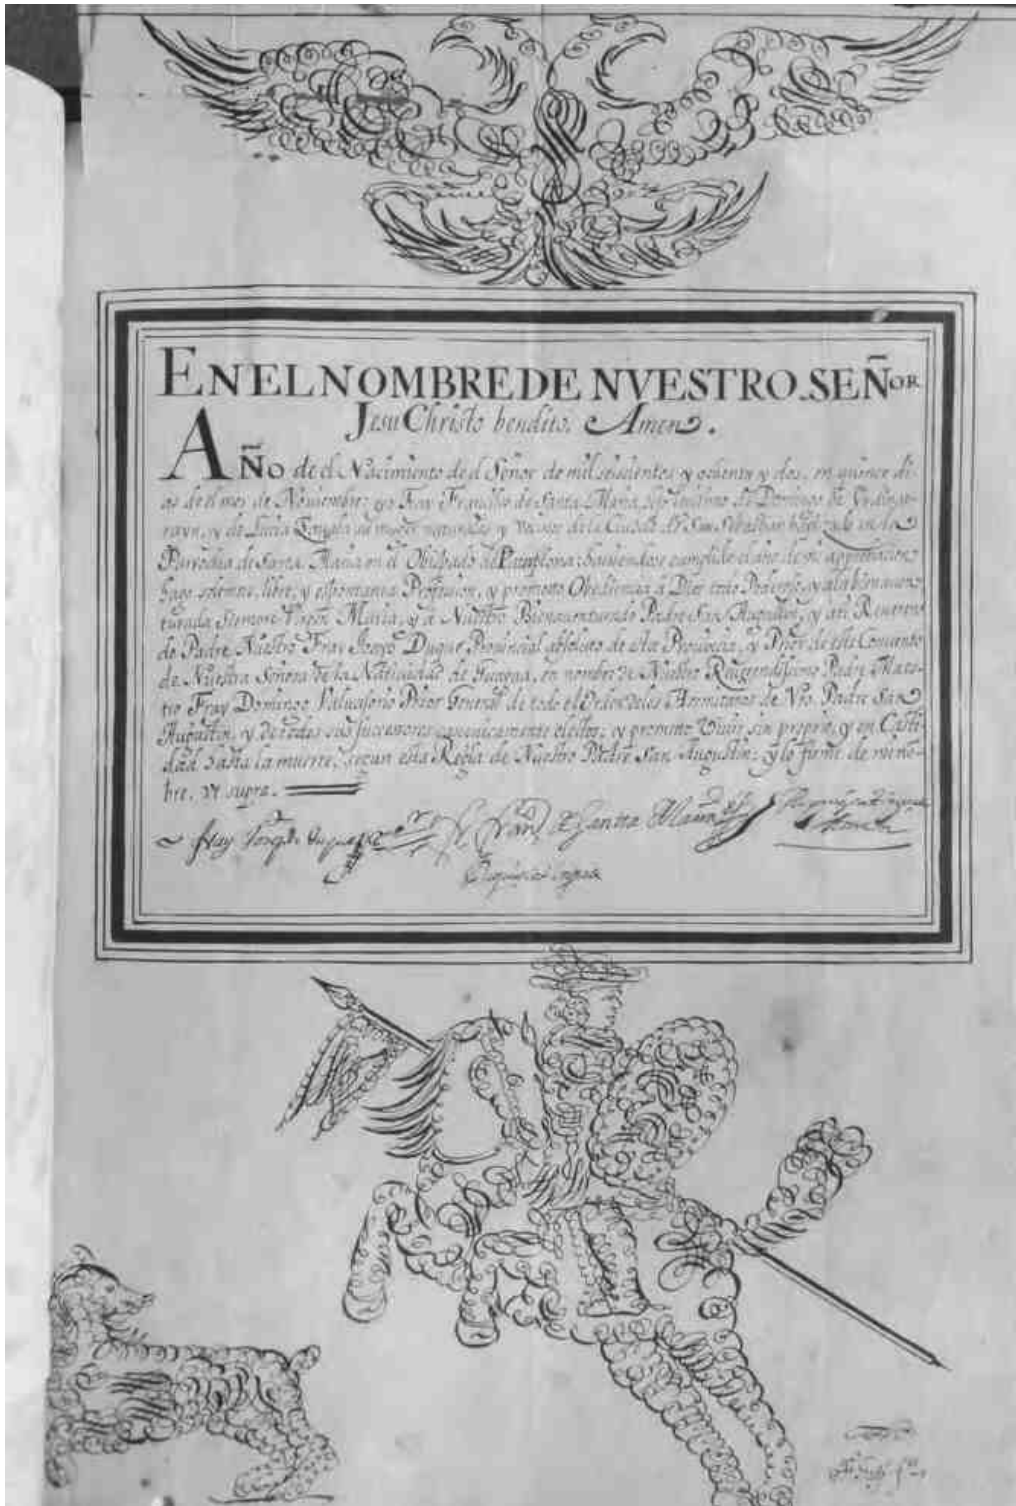 EN EL NOMBRE DE NVESTRO. SEÑOR
Jesu Christo bendito. Amen.
AÑO de el Nacimiento de el Señor de mil seiscientos y ochenta y dos, en quince di-
as de el mes de Noviembre: yo Fray Francisco de Santa Maria, hijo de Domingo de
y de Lucia su muger naturales y vecinos de la Ciudad de San Sebastian baptizado en la
Parrochia de Santa Maria en el Obispado de Pamplona: haviendose cumplido el año de mi approbacion
hago solemne, libre, y espontanea Profession, y prometo Obediencia à Dios todo Poderoso, y ala bienaven-
turada Siempre Virgen Maria, y à Nuestro Bienaventurado Padre San Augustin, y ati Reveren-
do Padre Nuestro Fray Duque Provincial absoluto de esta Provincia, y Prior de este Convento
de Nuestra Señora de la Natividad de en nombre de Nuestro Reverendissimo Padre Maes-
tro Fray Domingo Valvasorio Prior General de todo el Orden delos Hermitaños de Nro. Padre San
Augustin, y de todos sus successores canonicamente electos: y prometo Vivir sin proprio, y en Casti-
dad hasta la muerte, segun esta Regla de Nuestro Padre San Augustin: y lo firme de mi no-
bre. vt supra.
Fray Fr. Fran.co de Santa Maria